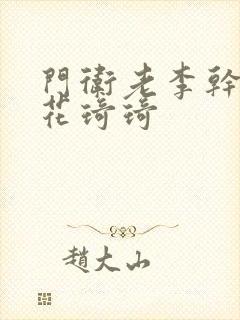 門衛老李幹
花琦琦
趙大山